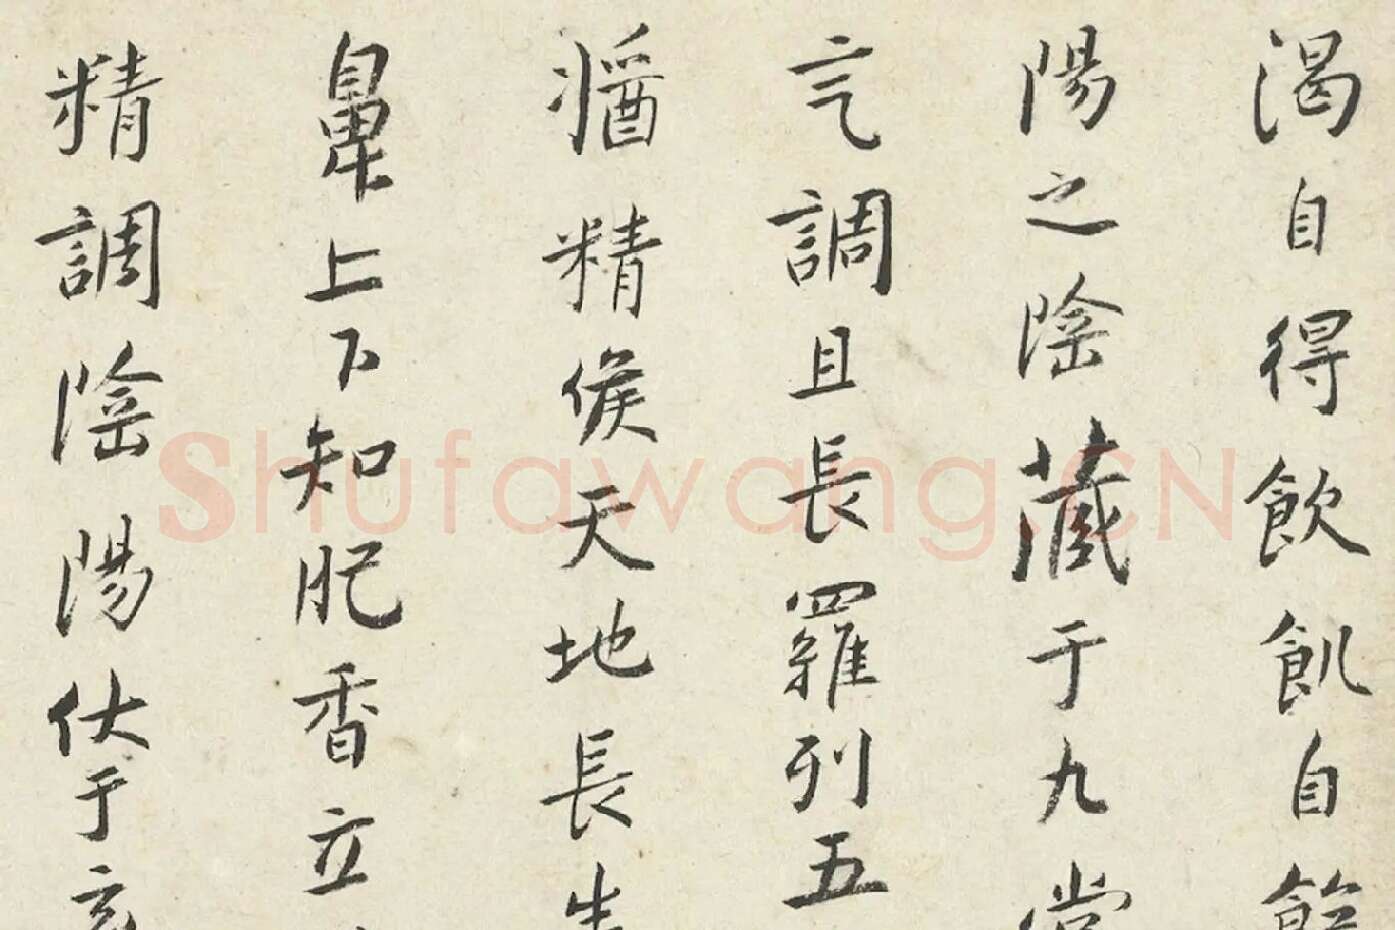 渴自得飲飢自飽
陽之陰藏于九常
言調且長羅列五
猶精侯天地長生
鼻上下知肥香立
精調陰陽伏于玄
Shufawang.CN